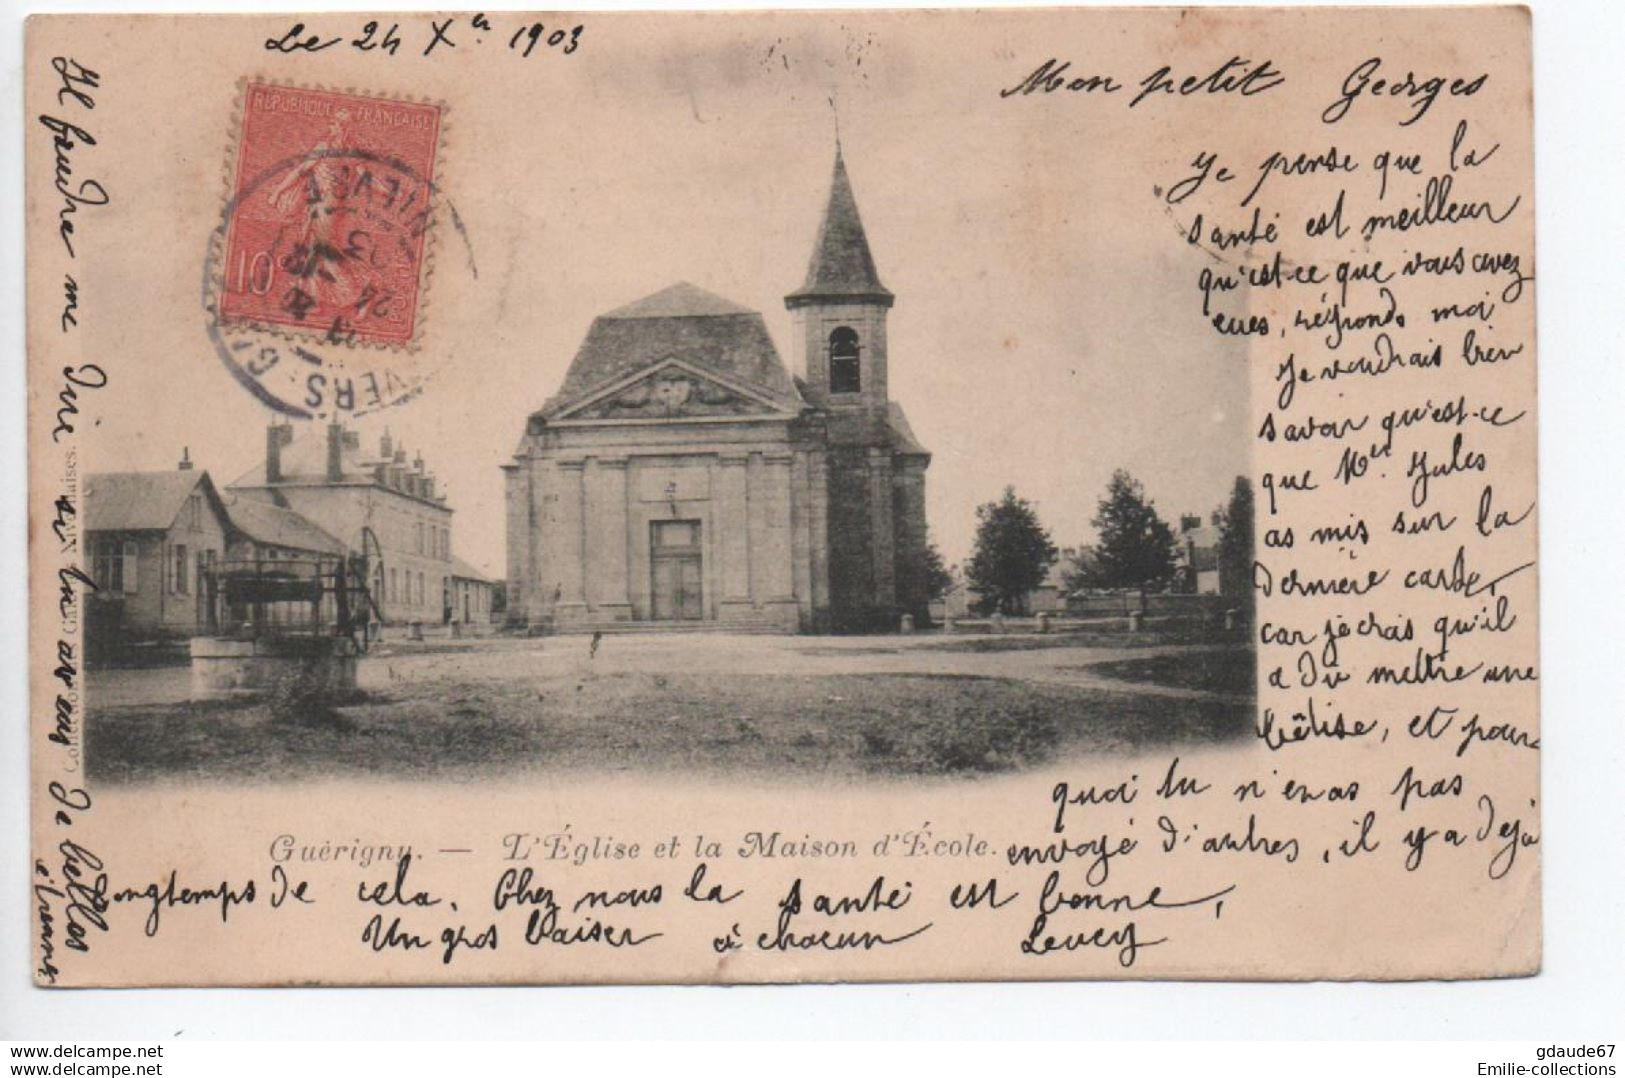 Le 24 Xre 1903
Mon petit Georges
Je pense que la
santé est meilleur
qu'est-ce que vous avez
eues, réponds moi
Je voudrais bien
savoir qu'est-ce
que Mer Jules
as mis sur la
dernière carte,
car je crois qu'il
a dû mettre une
bêtise, et pour
quoi tu n'enas pas
envoyé d'autres, il y a dejà
longtemps de cela. Chez nous la santé est bonne,
Un gros baiser à chacun Levey
Il faudra me dire si tu as eus de belles
étrennes
RÉPUBLIQUE FRANÇAISE
10
NIÈVRE
24
03
Guérigny. — L'Église et la Maison d'École.
www.delcampe.net
gdaude67
Emilie-collections